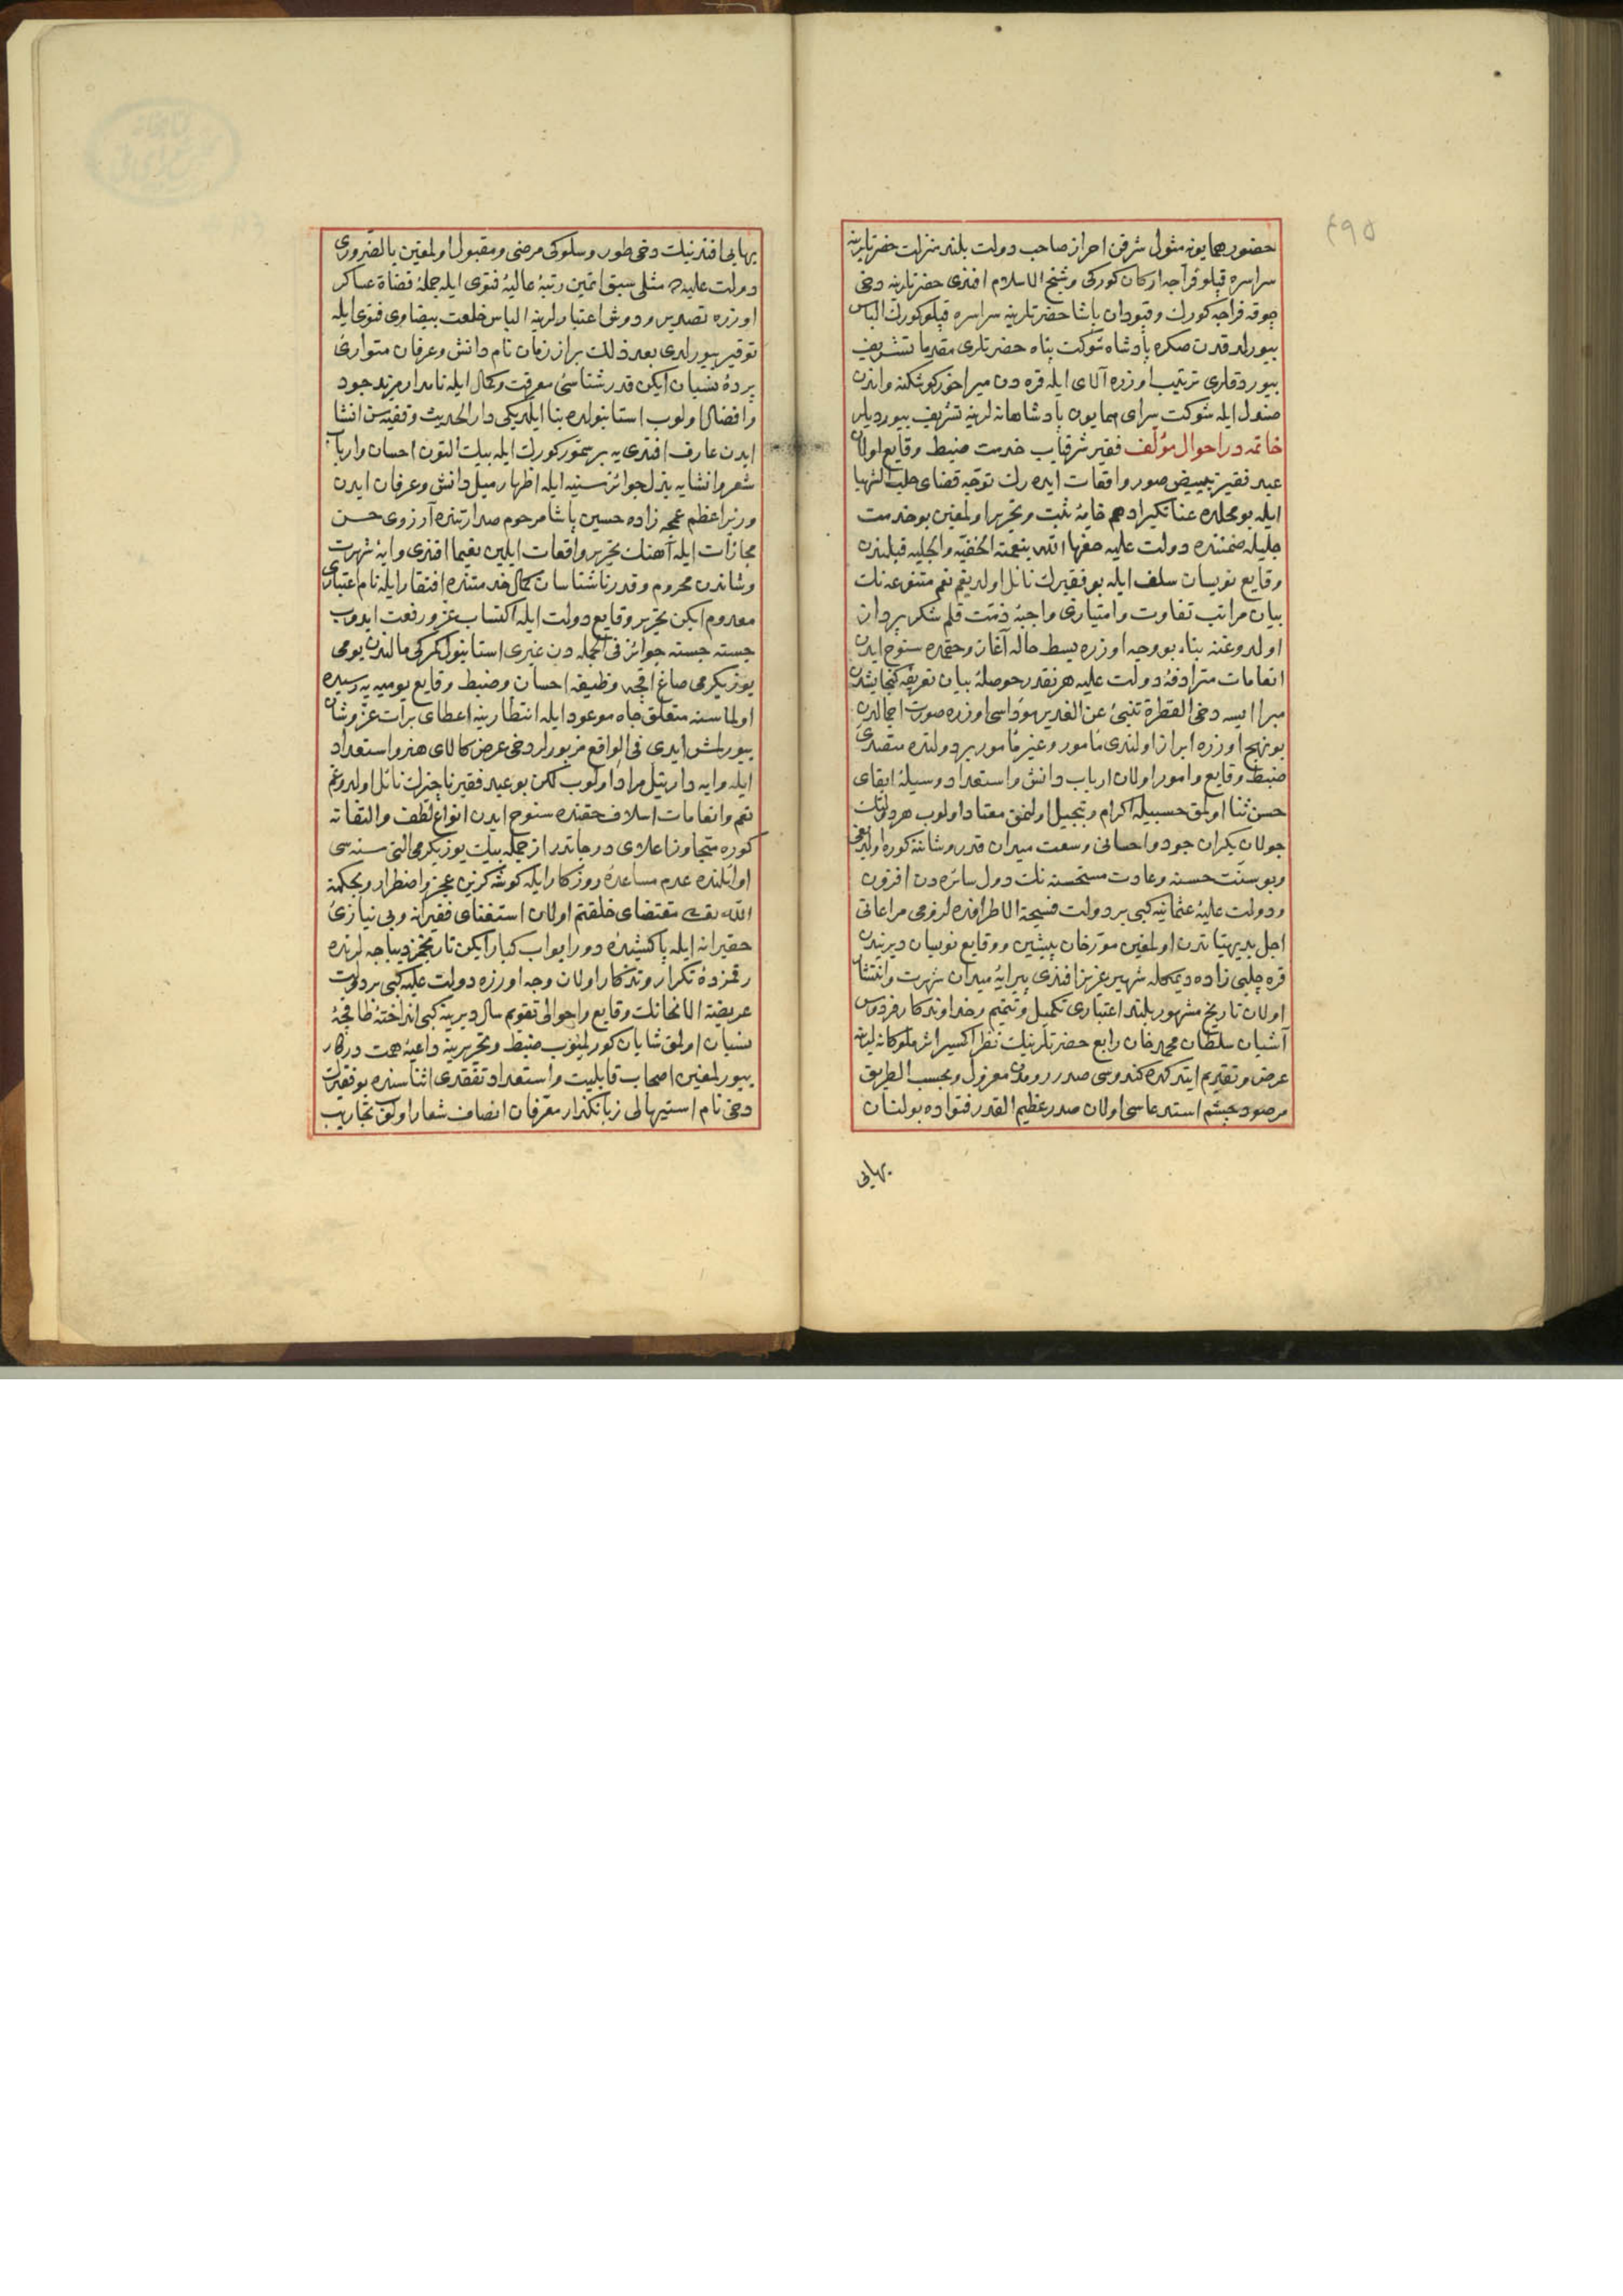 حضور همایونه مثول شرفن احراز صاحب دولت بلند منزلت حضرتلرینه
سراسره قپلو فراجه ارکان کورکی و شیخ الاسلام افندی حضرتلرینه دخی
چوقه فراجه کورك و قپودان پاشا حضرتلرینه سراسره قپلو کورك الباس
بیورلدقدن صکره پادشاه شوکت پناه حضرتلری مقدما تشریف
بیوردقلری ترتیب اوزره آلای ایله قره دن میراخور کوشکنه واندن
صندل ایله شوکت سرای همایون پادشاهانه لرینه تشریف بیوردیلر
خاتمه در احوال مؤلف فقیر شرفیاب خدمت ضبط وقایع اولان
عبد فقیر تبییض صور واقعات ایدەرك توجه قضای حلب الشهبا
ایله بو محلده عنانکیر ادهم خامهٔ ثبت و تحریر اولمغین بو خدمت
جلیله ضمننده دولت علیه حفها الله بنعمته الخفیه والجلیه قبلندن
وقایع نویسان سلف ایله بو فقیرك نائل اولدیغم نعم متنوعه نك
بیان مراتب تفاوت و امتیازی واجبهٔ ذمت قلم شکر پردازن
اولدوغنه بناء بو وجه اوزره بسط حاله آغاز و حقمده سنوح ایدن
انعامات مترادفهٔ دولت علیه هر نقدر حوصلهٔ بیان تعریفه کنجایشدن
مبرا ایسه دخی القطرة تنبئ عن الغدیر مؤداسی اوزره صورت اجمالدن
بو نهج اوزره ابراز اولندی مأمور و غیر مأمور بر دولتده متصدی
ضبط وقایع و امور اولان ارباب دانش و استعداد وسیلهٔ ابقای
حسن ثنا اولمق حسبیله اکرام و تبجیل اولنمق معتاد اولوب هر دولتك
جولان یکران جود و احسانی وسعت میدان قدر و شاننه کوره اولدیغی
و بو سنت حسنه و عادت مستحسنه نك دول سائره دن افزون
و دولت علیهٔ عثمانیه کبی بر دولت فسیحة الاطرافده لزومی مراعاتی
اجل بدیهیتدن اولمغین مورخان پیشین و وقایع نویسان دیریندن
قره چلبی زاده دیمکله شهیر عزیز افندی پیرایهٔ میدان شهرت و انتشار
اولان تاریخ مشهور بلند اعتباری تکمیل و تتمیم و خداوندکار فردوس
آشیان سلطان محمد خان رابع حضرتلرینك نظر اکسیر اثر ملوکانه لرینه
عرض و تقدیم ایتدکده کندوسی صدر رومدن معزول و بحسب الطریق
مرصود چشم استدعاسی اولان صدر عظیم القدر فتواده بولنان
بهایی
بهایی افندینك دخی طور و سلوکی مرضی و مقبول اولمغین بالضروری
دولت علیه ده مثلی سبق اتمین رتبهٔ عالیهٔ فتوی ایله جملهٔ قضاة عساکر
اوزره تصدیر و دوش اعتبارلرینه الباس خلعت بیضاوی فتوی ایله
توقیر بیورلدی بعد ذلك براز زمان نام دانش و عرفان متواری
پردهٔ نسیان ایکن قدر شناسیٔ معرفت و کمال ایله نامدار مزید جود
و افضال اولوب استانبولده بنا ایلدیکی دار الحدیث وقفیه سن انشا
ایدن عارف افندی یه بر سمور کورك ایله بیك التون احسان و ارباب
شعر و انشایه بذل جوائز سنیه ایله اظهار میل دانش و عرفان ایدن
وزیر اعظم عمجه زاده حسین پاشا مرحوم صدارتنده آرزوی حسن
مجازات ایله آهنك تحریر واقعات ایلین نعیما افندی وایهٔ شهرت
و شاندن محروم و قدر ناشناسان کمال خدمتنده افتقار ایله نام اعتباری
معدوم ایکن تحریر وقایع دولت ایله اکتساب عز و رفعت ایدوب
جسته جسته جوائز فی الجمله دن غیری استانبول کمرکی مالندن یومی
یوز یکرمی صاغ اقچه وظیفه احسان و ضبط وقایع یومیه یه رسیده
اولماسنه متعلق جاه موعود ایله انتظارینه اعطای برات عز و شان
بیورلمش ایدی فی الواقع مزبورلر دخی عرض کالای هنر و استعداد
ایله وایه دار نیل مراد اولوب لکن بو عبد فقیر ناچیزك نائل اولدوغم
نعم و انعامات اسلاف حقنده سنوح ایدن انواع لطف و التفاته
کوره متجاوز اعلای درجاتدر از جمله بیك یوز یکرمی التی سنه سی
اوائلنده عدم مساعدهٔ روزکار ایله کوشه کزین عجز و اضطرار و بحکمة
الله تعالی مقتضای خلقتم اولان استغنای فقیرانه و بی نیازی
حقیرانه ایله پاکشیدهٔ دور ابواب کبار ایکن تاریخمز دیباجه لرنده
رقمزدهٔ تکرار و تذکار اولان وجه اوزره دولت علیه کبی بر دولت
عریضة الانحانك وقایع و احوالی تقویم سال دیرینه کبی انداخته طاقچهٔ
نسیان اولمق شایان کورلمیوب ضبط و تحریرینه داعیهٔ همت درکار
بیورلمغین اصحاب قابلیت و استعداد تفقدی اثناسنده بو فقیرك
دخی نام استیهالی زبانکذار معرفان انصاف شعار اولوب تجاریب